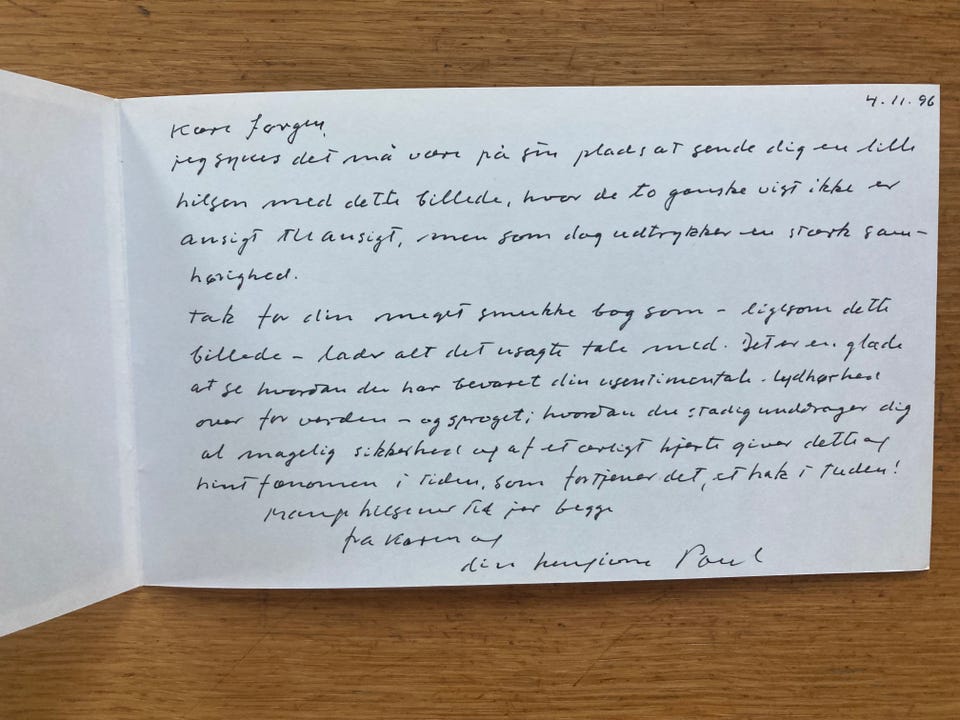 4.11.96
Kære Jørgen,
jeg synes det må være på sin plads at sende dig en lille
hilsen med dette billede, hvor de to ganske vist ikke er
ansigt til ansigt, men som dog udtrykker en stærk sam-
hørighed.
Tak for din meget smukke bog som – ligesom dette
billede – lader alt det usagte tale med. Det er en glæde
at se hvordan du har bevaret din usentimentale lydhørhed
over for verden – og sproget; hvordan du stadig unddrager dig
al magelig sikkerhed og af et ærligt hjerte giver dette og
hint fænomen i tiden, som fortjener det, et hak i tuden!
Mange hilsener til jer begge
fra Karen og
din hengivne Poul